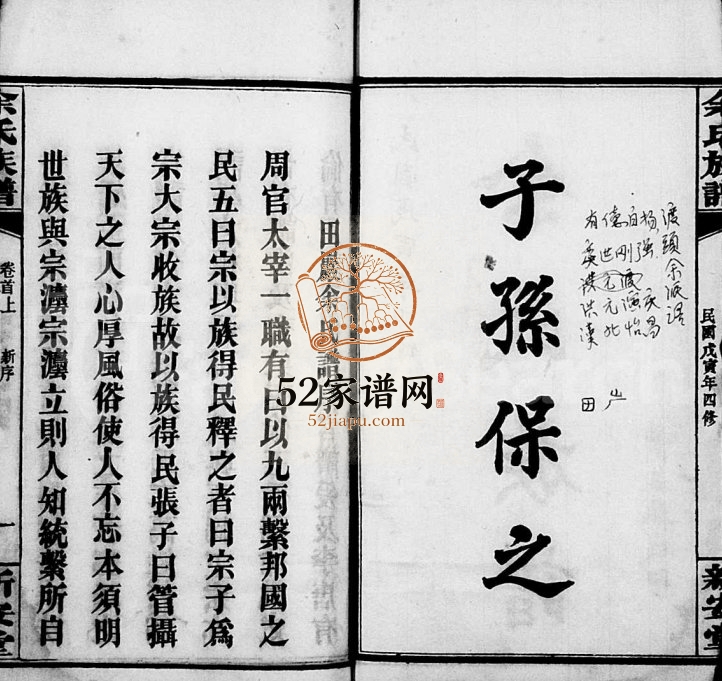 余氏族譜
民國戊寅年四修
新安堂
子孫保之
渡頭余派語
田
余氏族譜
卷首上
新序
一
新安堂
周官太宰一職有曰以九兩繫邦國之
民五曰宗以族得民釋之者曰宗子為
宗大宗收族故以族得民張子曰管攝
天下之人心厚風俗使人不忘本須明
世族與宗灋宗灋立則人知統繫所自
52家谱网
52jiapu.com